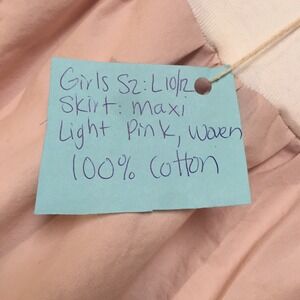 Girls Sz: L 10/12
Skirt: maxi
Light Pink, Woven
100% Cotton